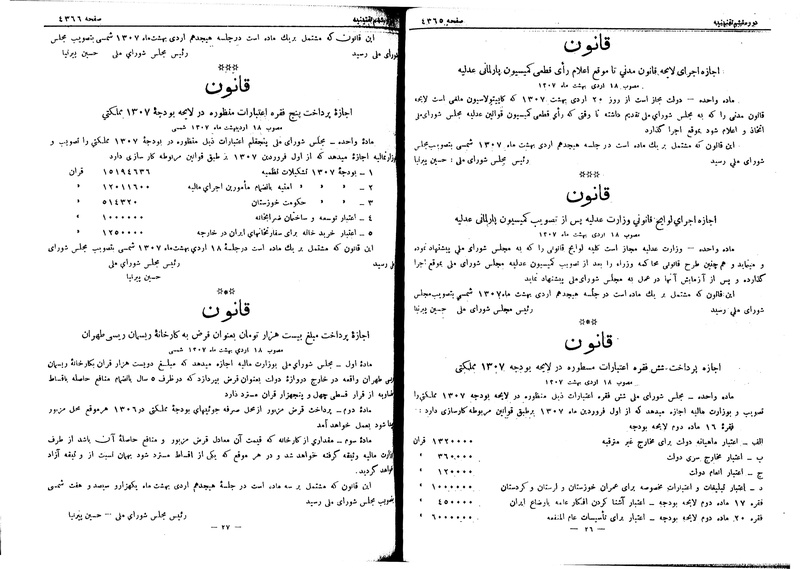 دوره ششم تقنینیه
صفحه ۴۳۶۵
قانون
اجازه اجرای لایحه قانون مدنی تا موقع اعلام رأی قطعی کمیسیون پارلمانی عدلیه
مصوب ۱۸ اردی بهشت ۱۳۰۷
ماده واحده – دولت مجاز است از روز ۲۰ اردی بهشت ۱۳۰۷ که کاپیتولاسیون ملغی است لایحه
قانون مدنی را که به مجلس شورای ملی تقدیم داشته تا وقتی که رأی قطعی کمیسیون قوانین عدلیه مجلس شورای ملی
اتخاذ و اعلام شود بموقع اجرا گذارد
این قانون که مشتمل بر یک ماده است در جلسه هیجدهم اردی بهشت ماه ۱۳۰۷ شمسی بتصویب مجلس
شورای ملی رسید
رئیس مجلس شورای ملی : حسین پیرنیا
***
قانون
اجازه اجرای لوایح قانونی وزارت عدلیه پس از تصویب کمیسیون پارلمانی عدلیه
مصوب ۱۸ اردی بهشت ماه ۱۳۰۷
ماده واحده – وزارت عدلیه مجاز است کلیه لوایح قانونی را که به مجلس شورای ملی پیشنهاد نموده
و مینماید و همچنین طرح قانونی محاکمه وزراء را بعد از تصویب کمیسیون عدلیه مجلس شورای ملی بموقع اجرا
گذارده و پس از آزمایش آنها در عمل به مجلس شورای ملی پیشنهاد نماید
این قانون که مشتمل بر یک ماده است در جلسه هیجدهم اردی بهشت ماه ۱۳۰۷ شمسی بتصویب مجلس
شورای ملی رسید
رئیس مجلس شورای ملی : حسین پیرنیا
***
قانون
اجازه پرداخت شش فقره اعتبارات مسطوره در لایحه بودجه ۱۳۰۷ مملکتی
مصوب ۱۸ اردی بهشت ۱۳۰۷
ماده واحده – مجلس شورای ملی شش فقره اعتبارات ذیل منظوره در لایحه بودجه ۱۳۰۷ مملکتی را
تصویب و بوزارت مالیه اجازه میدهد که از اول فروردین ماه ۱۳۰۷ بر طبق قوانین مربوطه کارسازی دارد :
فقره ۱۶ ماده دوم لایحه بودجه
الف – اعتبار ماهیانه دولت برای مخارج غیر مترقبه ۱۳۲۰۰۰۰ قران
ب – اعتبار مخارج سری دولت ۳۶۰۰۰۰ »
ج – اعتبار انعام دولت ۱۲۰۰۰۰ »
د – اعتبار تبلیغات و اعتبارات مخصوصه برای عمران خوزستان و لرستان و کردستان ۱۰۰۰۰۰۰ »
فقره ۱۷ ماده دوم لایحه بودجه – اعتبار آشنا کردن افکار عامه باوضاع ایران ۴۵۰۰۰۰ »
فقره ۲۰ ماده دوم لایحه بودجه – اعتبار برای تأسیسات عام المنفعه ۶۰۰۰۰۰۰ »
– ۲۶ –
صفحه ۴۳۶۶
این قانون که مشتمل بر یک ماده است در جلسه هیجدهم اردی بهشت ماه ۱۳۰۷ شمسی بتصویب مجلس
شورای ملی رسید
رئیس مجلس شورای ملی حسین پیرنیا
***
قانون
اجازه پرداخت پنج فقره اعتبارات منظوره در لایحه بودجه ۱۳۰۷ مملکتی
مصوب ۱۸ اردیبهشت ماه ۱۳۰۷ شمسی
ماده واحده – مجلس شورای ملی پنجقلم اعتبارات ذیل منظوره در بودجه ۱۳۰۷ مملکتی را تصویب و
بوزارت مالیه اجازه میدهد که از اول فروردین ۱۳۰۷ بر طبق قوانین مربوطه کارسازی دارد
۱ – بودجه ۱۳۰۷ تشکیلات نظمیه ۱۵۱۹۴۶۳۶ قران
۲ – » » امنیه بانضمام مأمورین اجرای مالیه ۱۲۰۱۱۶۰۰ »
۳ – » » حکومت خوزستان ۵۱۴۳۲۰ »
۴ – اعتبار توسعه و ساختمان ضرابخانه ۱۰۰۰۰۰۰ »
۵ – اعتبار خرید خانه برای سفارتخانهای ایران در خارجه ۱۲۵۰۰۰۰ »
این قانون که مشتمل بر یک ماده است در جلسه ۱۸ اردی بهشت ماه ۱۳۰۷ شمسی بتصویب مجلس شورای
ملی رسید
رئیس مجلس شورای ملی
حسین پیرنیا
***
قانون
اجازه پرداخت مبلغ بیست هزار تومان بعنوان قرض به کارخانه ریسمان ریسی طهران
مصوب ۱۸ اردی بهشت ماه ۱۳۰۷ شمسی
ماده اول – مجلس شورای ملی بوزارت مالیه اجازه میدهد که مبلغ دویست هزار قران بکارخانه ریسمان
ریسی طهران واقعه در خارج دروازه دولت بعنوان قرض بپردازد که در ظرف ۵ سال بانضمام منافع حاصله باقساط
متساویه از قرار قسطی چهل و پنجهزار قران مسترد دارد
ماده دوم – پرداخت قرض مزبور از محل صرفه جوئیهای بودجه مملکتی در ۱۳۰۶ هر موقع محل مزبور
پیدا شود بعمل خواهد آمد
ماده سوم – مقداری از کارخانه که قیمت آن معادل قرض مزبور و منافع حاصله آن باشد از طرف
وزارت مالیه وثیقه گرفته خواهد شد و در هر موقع که یکی از اقساط مسترد شود بهمان نسبت از و ثیقه آزاد
خواهد گردید.
این قانون که مشتمل بر سه ماده است در جلسه هیجدهم اردی بهشت ماه یکهزار و سیصد و هفت شمسی
بتصویب مجلس شورای ملی رسید
رئیس مجلس شورای ملی – حسین پیرنیا
– ۲۷ –